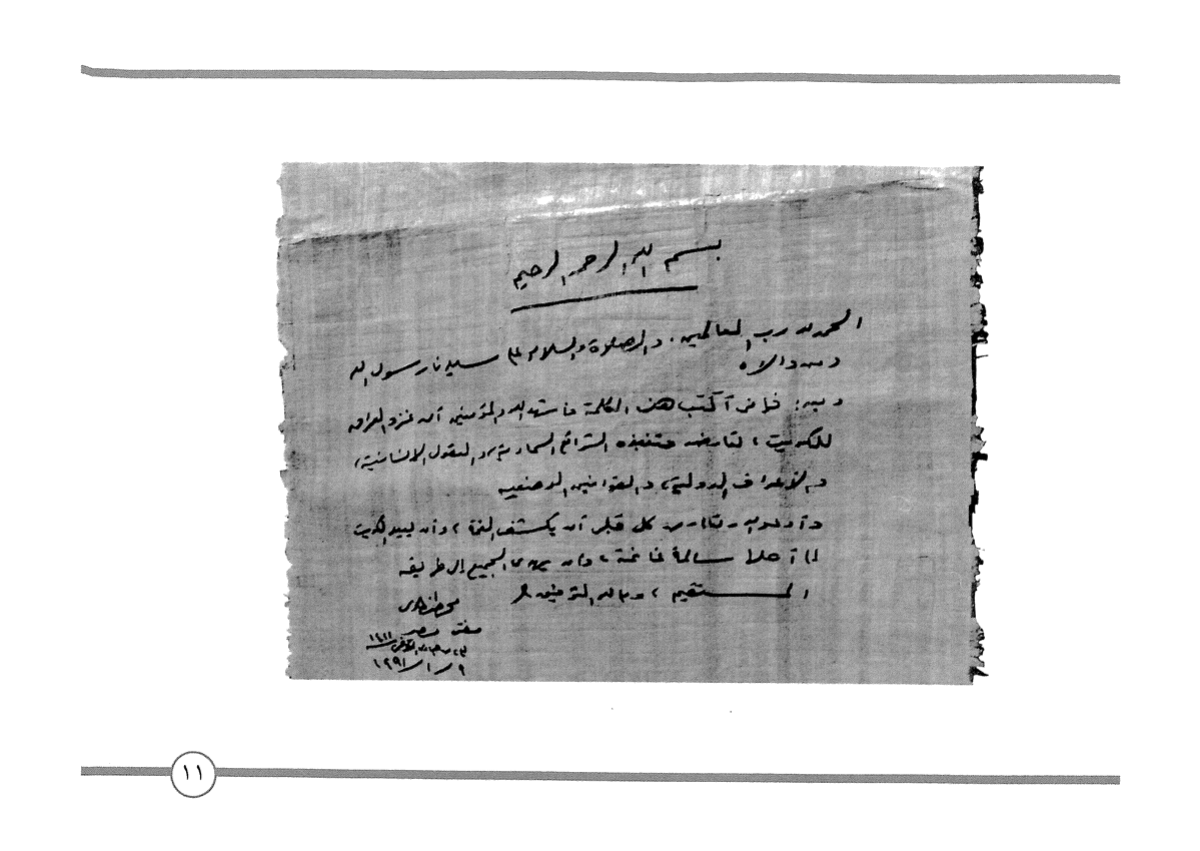 بسم الله الرحمن الرحيم
الحمد لله رب العالمين. والصلاة والسلام على سيدنا رسول الله
ومن والاه
وبعد: فإنى أكتب هذه الكلمة الله والمؤمنين أن غزو العراق
للكويت، الشرائع السماوية، والعقول الإنسانية،
والأعراف الدولية، والقوانين الوضعية
وأدعو الله كل قلبى أن يكشف الغمة، وأن يعيد الكويت
إلى أهلها سالمة غانمة، وأن يهدى الجميع إلى طريقه
المستقيم، وبالله التوفيق
محمد طنطاوى
مفتى مصر
جمادى الآخرة ١٤١١
٩ / ١ / ١٩٩١
١١